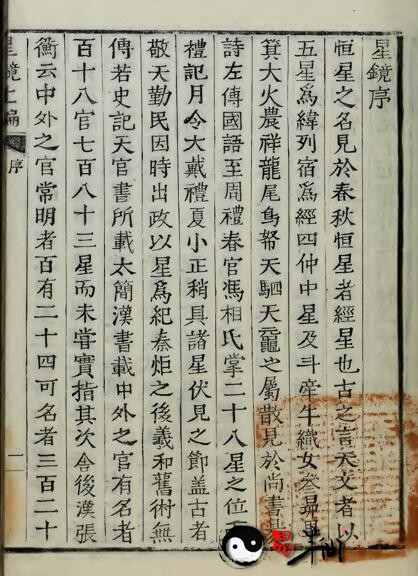 星鏡序
恒星之名見於春秋恒星者經星也古之言天文者以
五星爲緯列宿爲經四仲中星及斗牽牛織女參昴畢
箕大火農祥龍尾鳥帑天駟天黿之屬散見於尚書
詩左傳國語至周禮春官馮相氏掌二十八星之位而
禮記月令大戴禮夏小正稍具諸星伏見之節盖古者
敬天勤民因時出政以星爲紀秦炬之後羲和舊術無
傳若史記天官書所載太簡漢書載中外之官有名者
百十八官七百八十三星而未嘗實指其次舍後漢張
衡云中外之官常明者百有二十四可名者三百二十
星鏡上編
序
一
易